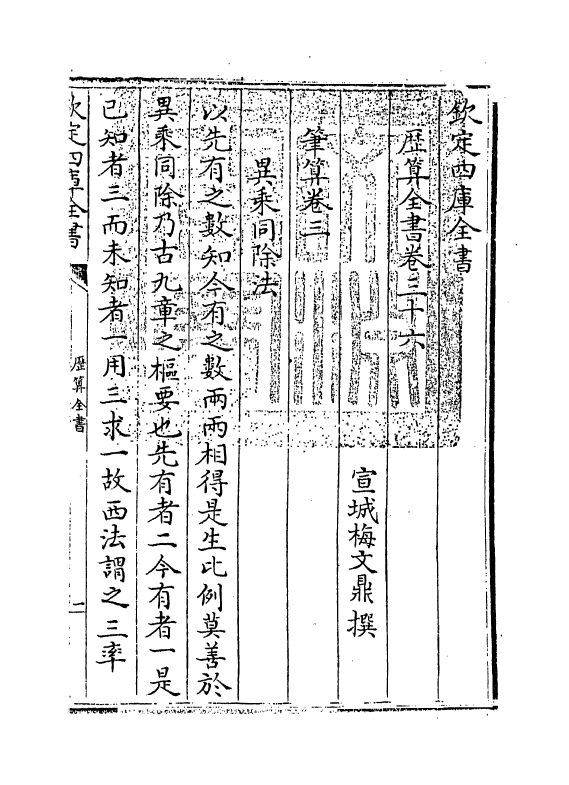 欽定四庫全書
歴算全書卷三十六
宣城梅文鼎撰
筆算卷三
異乘同除法
以先有之數知今有之數兩兩相得是生比例莫善於
異乘同除乃古九章之樞要也先有者二今有者一是
己知者三而未知者一用三求一故西法謂之三率
欽定四庫全書
歴算全書